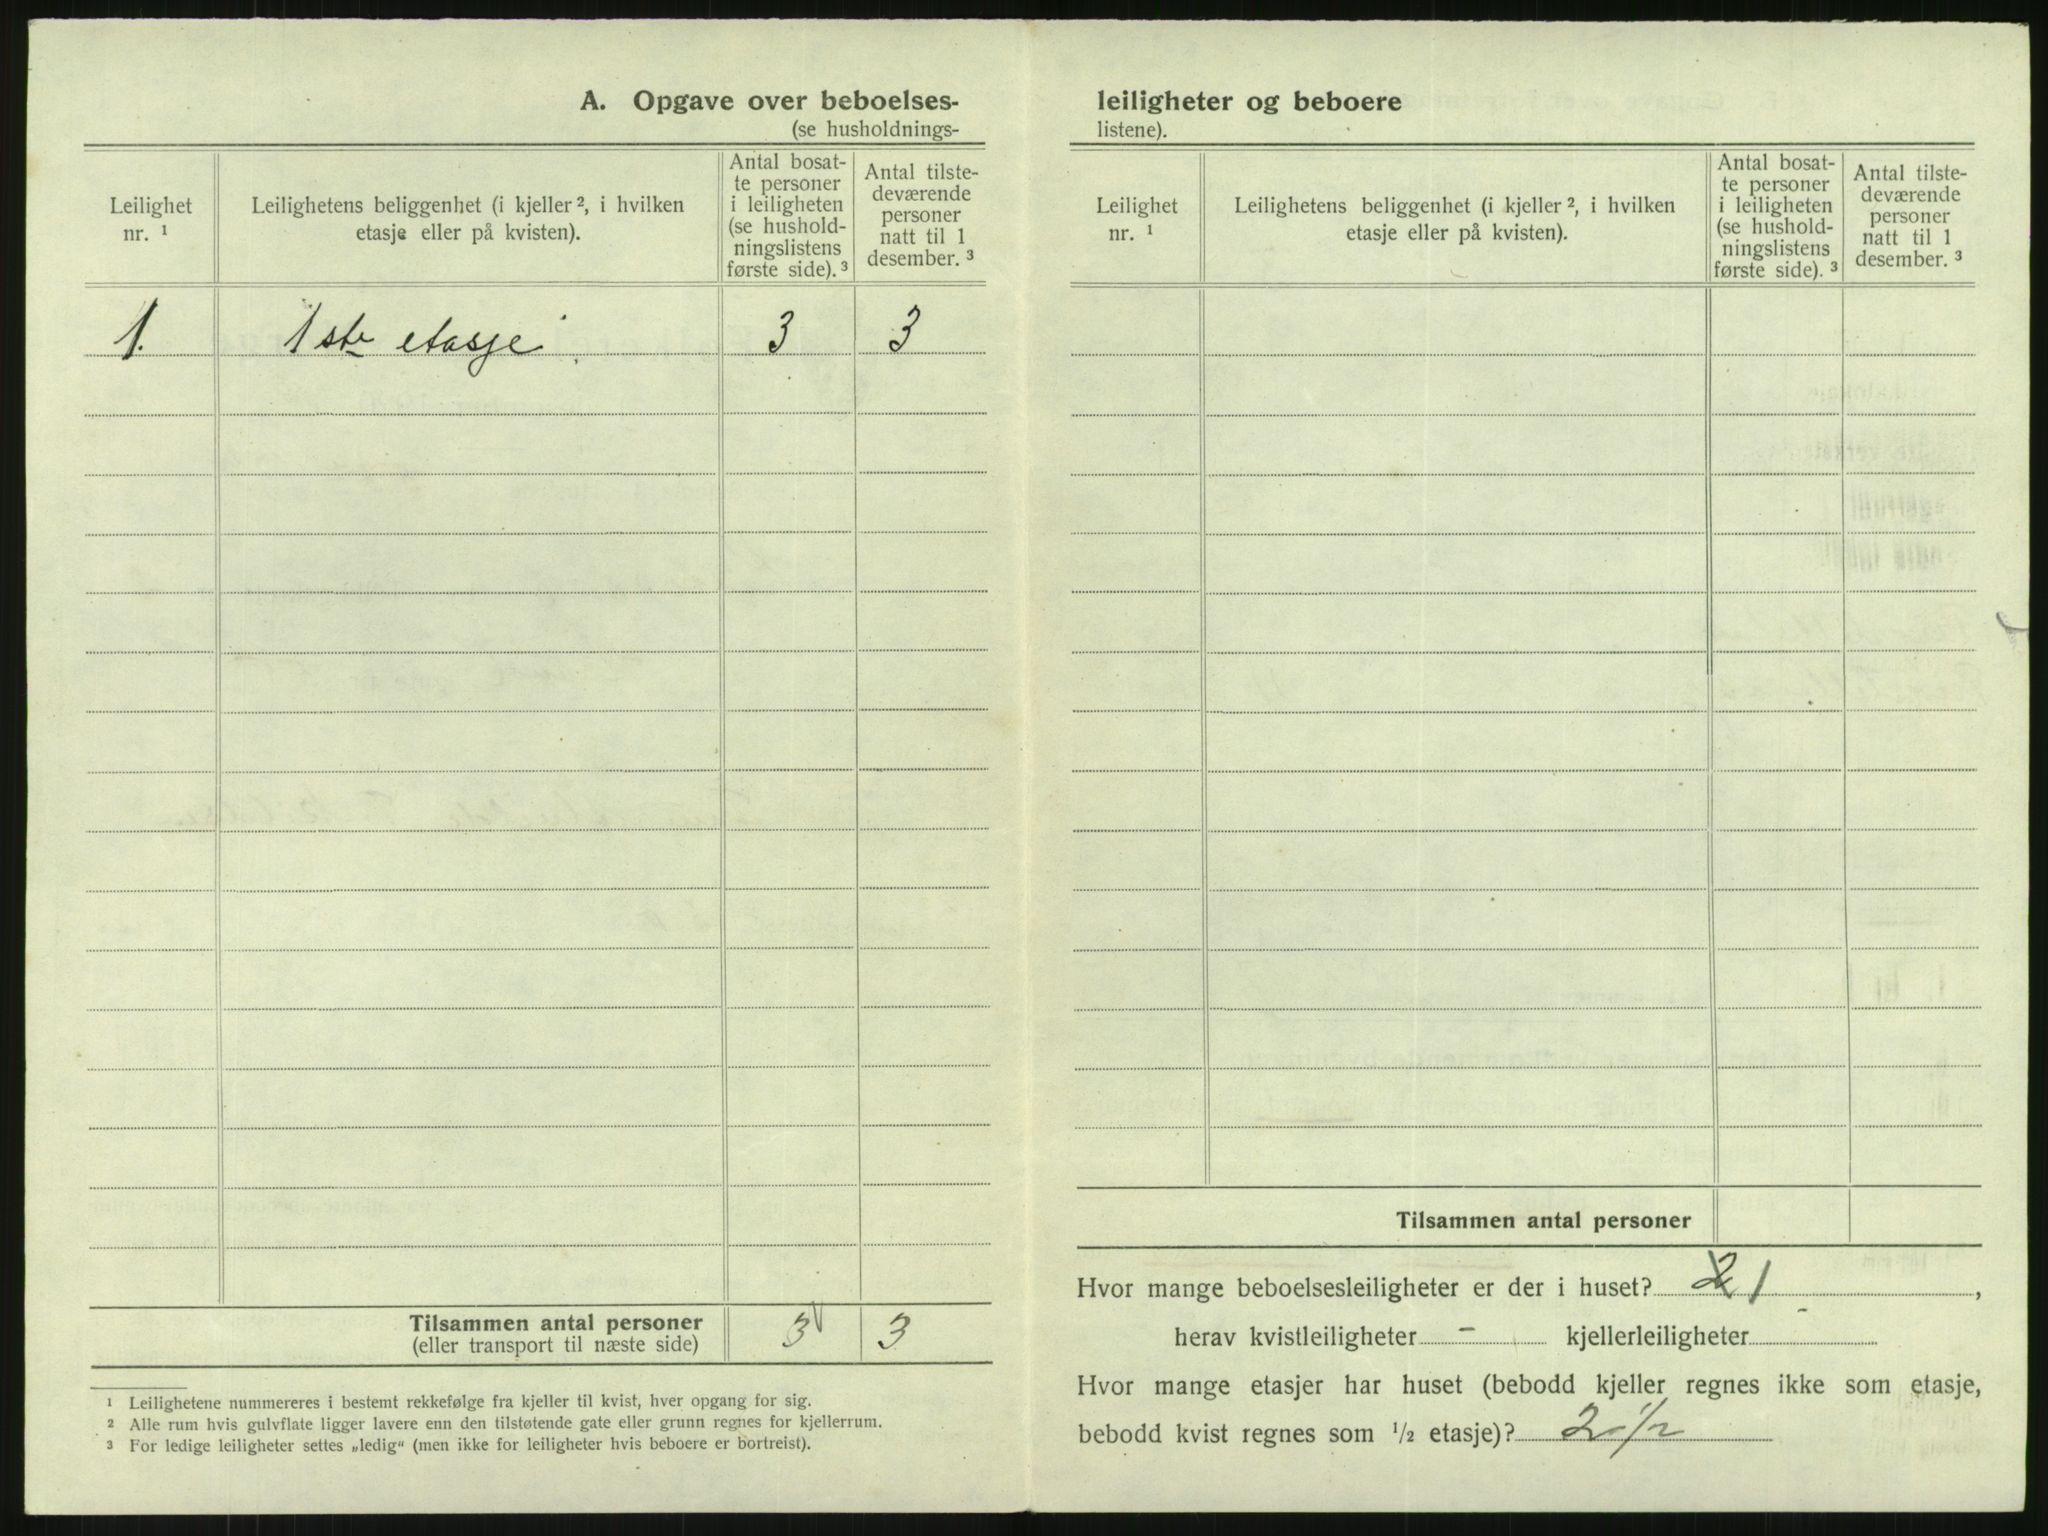 A. Opgave over beboelses-
(se husholdnings-
Leilighet
nr. ¹
Leilighetens beliggenhet (i kjeller ², i hvilken
etasje eller på kvisten).
Antal bosat-
te personer
i leiligheten
(se hushold-
ningslistens
første side). ³
Antal tilste-
deværende
personer
natt til 1
desember. ³
1. 1ste etasje 3 3
Tilsammen antal personer 3 3
(eller transport til næste side)
¹ Leilighetene nummereres i bestemt rekkefølge fra kjeller til kvist, hver opgang for sig.
² Alle rum hvis gulvflate ligger lavere enn den tilstøtende gate eller grunn regnes for kjellerrum.
³ For ledige leiligheter settes „ledig“ (men ikke for leiligheter hvis beboere er bortreist).
leiligheter og beboere
listene).
Leilighet
nr. ¹
Leilighetens beliggenhet (i kjeller ², i hvilken
etasje eller på kvisten).
Antal bosat-
te personer
i leiligheten
(se hushold-
ningslistens
første side). ³
Antal tilste-
deværende
personer
natt til 1
desember. ³
Tilsammen antal personer
Hvor mange beboelsesleiligheter er der i huset? 2 1,
herav kvistleiligheter - kjellerleiligheter -
Hvor mange etasjer har huset (bebodd kjeller regnes ikke som etasje,
bebodd kvist regnes som ½ etasje)? 2 1/2